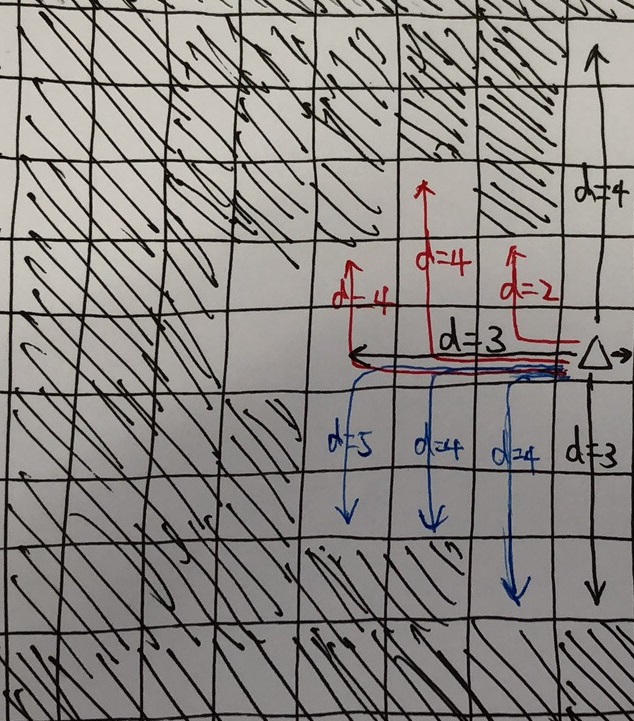 d=4
d=4
d=4
d=2
d=3
d=5
d=4
d=4
d=3